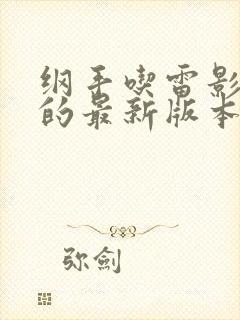 纲手喫雷影
的最新版本
弥劍